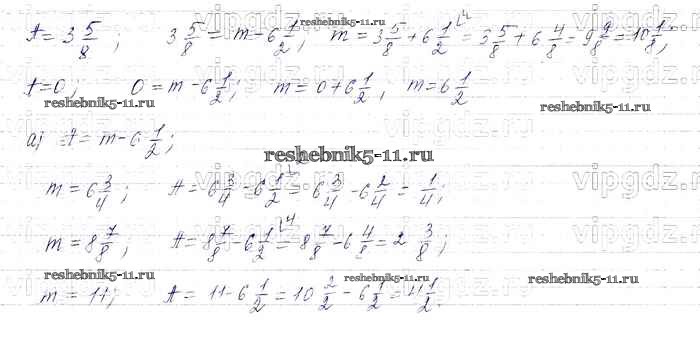 A = 3 5/8; 3 5/8 = m - 6 1/2; m = 3 5/8 + 6 1/2 = 3 5/8 + 6 4/8 = 9 9/8 = 10 1/8;
A = 0; 0 = m - 6 1/2; m = 0 + 6 1/2; m = 6 1/2
а) A = m - 6 1/2;
m = 6 3/4; A = 6 3/4 - 6 1/2 = 6 3/4 - 6 2/4 = 1/4;
m = 8 7/8; A = 8 7/8 - 6 1/2 = 8 7/8 - 6 4/8 = 2 3/8;
m = 11; A = 11 - 6 1/2 = 10 2/2 - 6 1/2 = 4 1/2.
reshebnik5-11.ru
reshebnik5-11.ru
reshebnik5-11.ru
reshebnik5-11.ru
reshebnik5-11.ru
reshebnik5-11.ru
reshebnik5-11.ru
vipgdz.ru